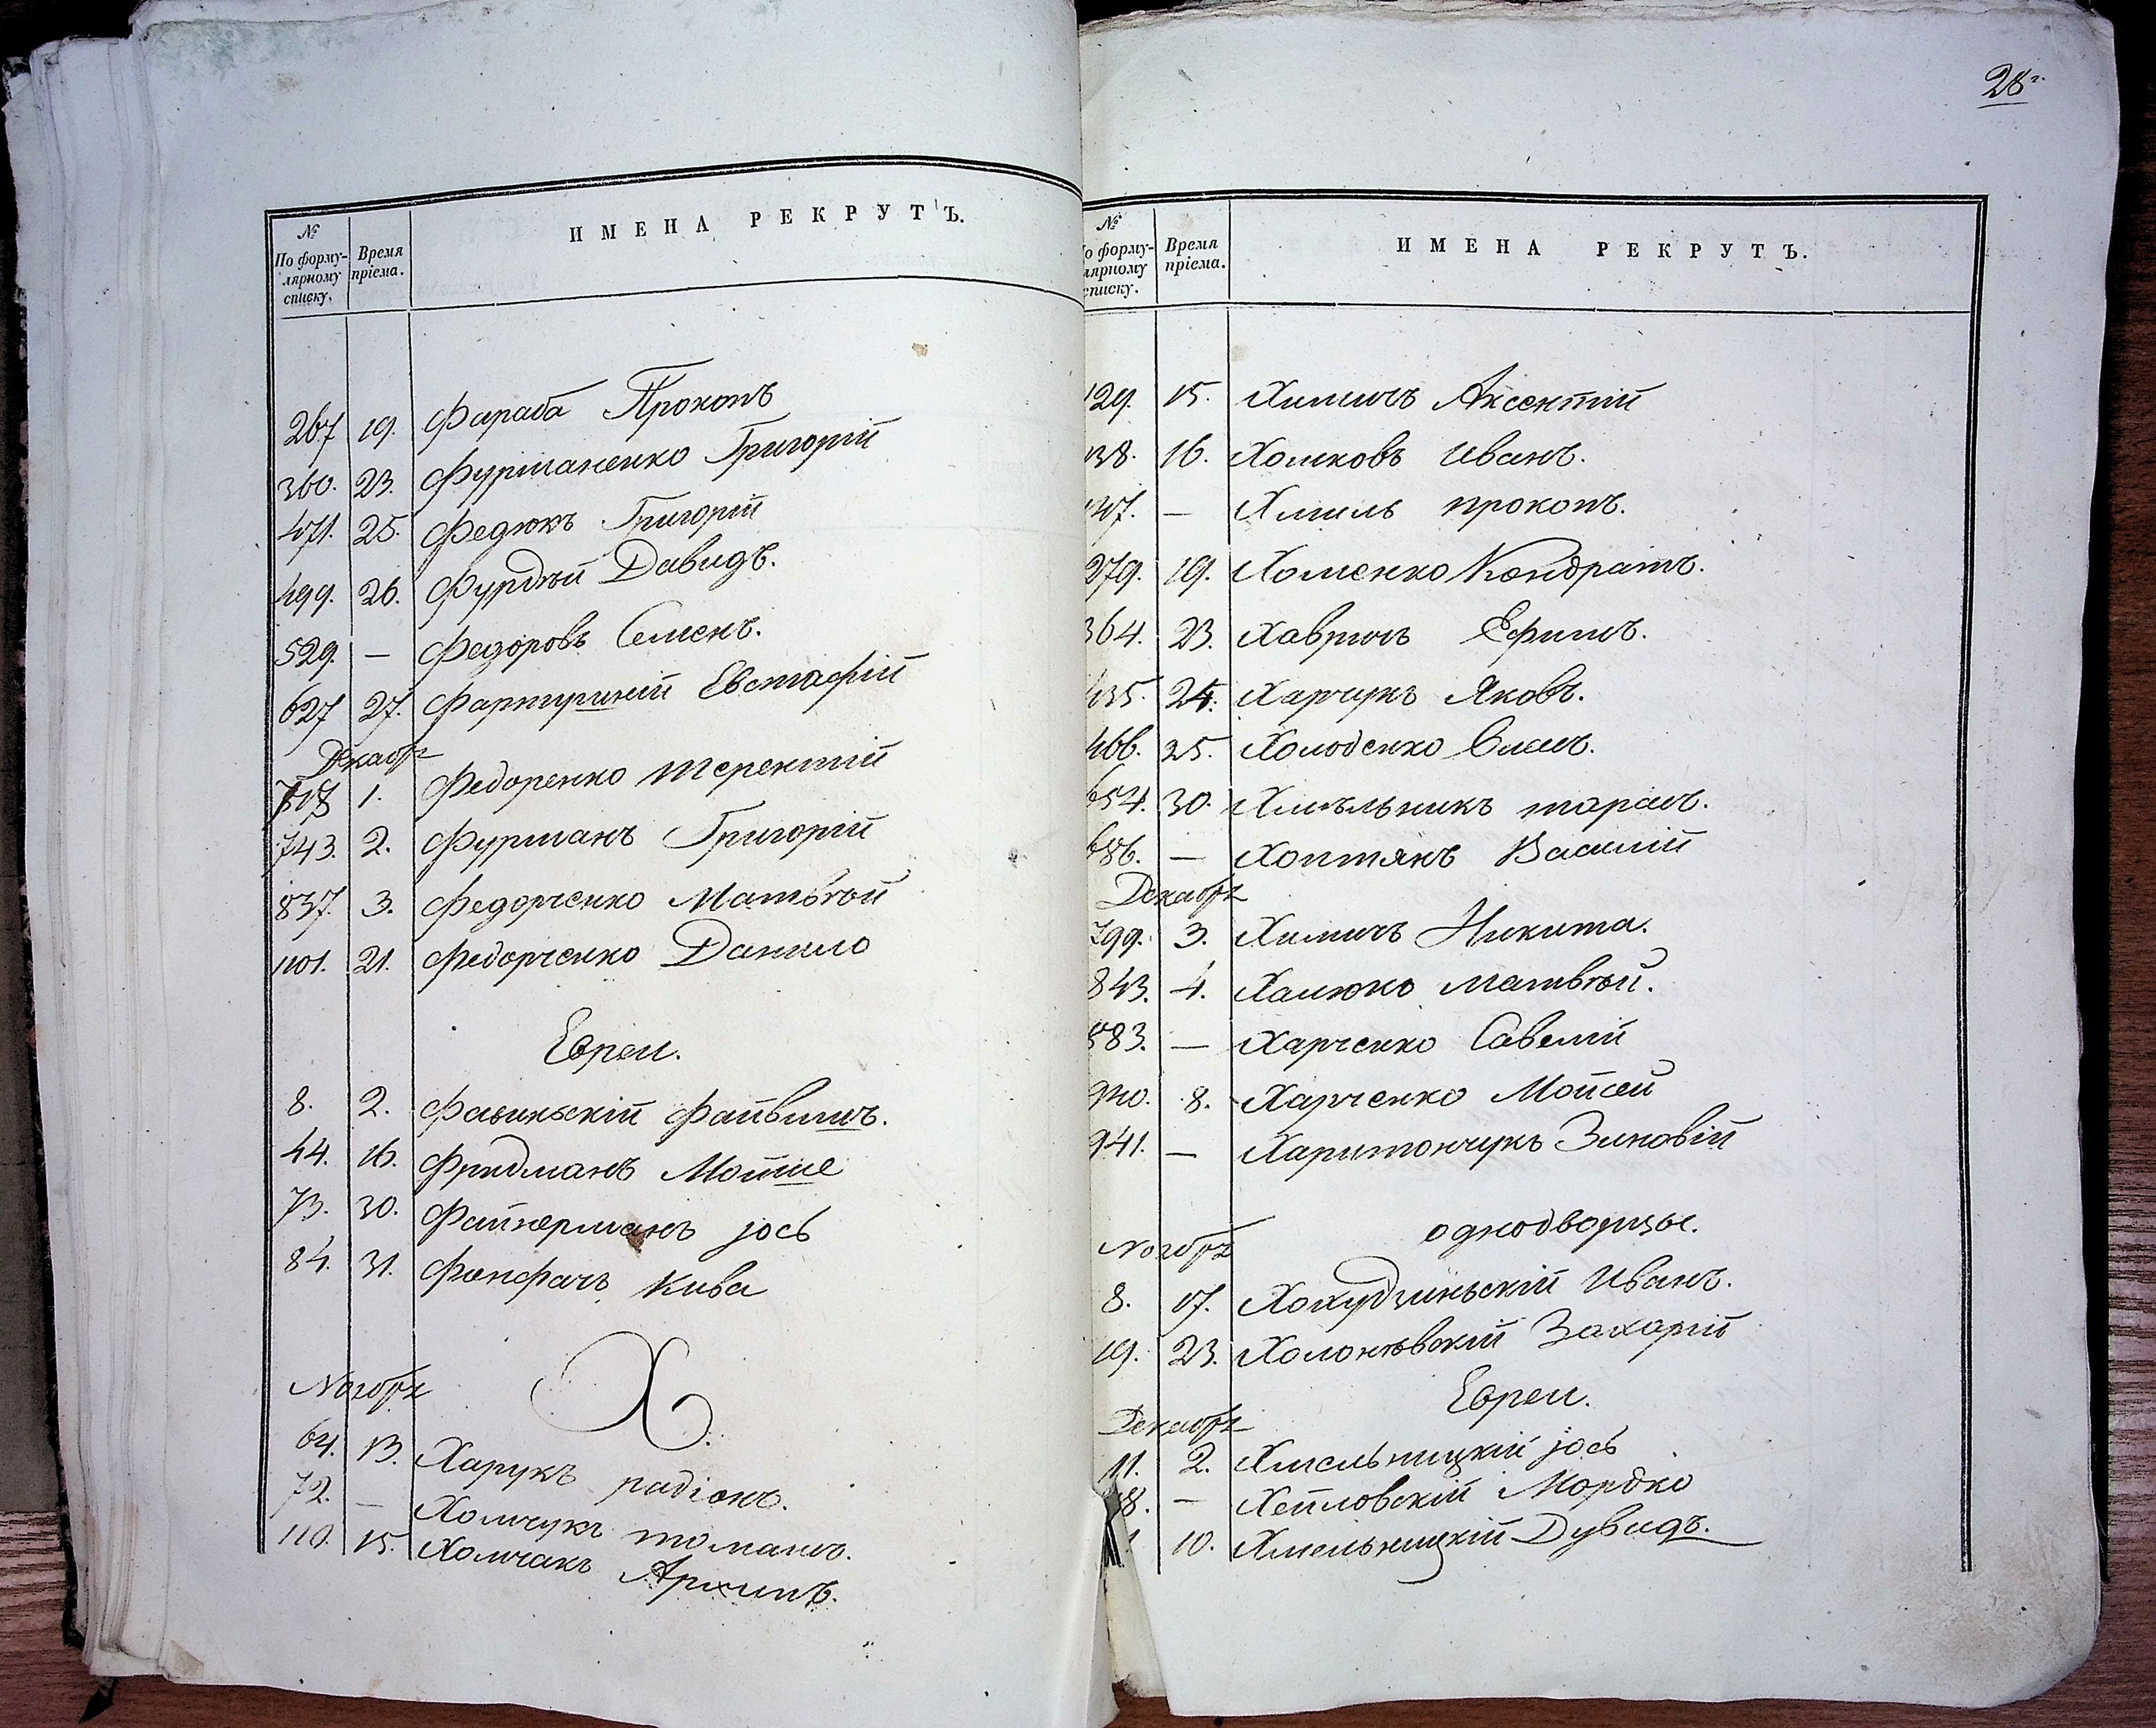 № По формулярному списку.
Время пріема.
ИМЕНА РЕКРУТЪ.
267 19. Фараба Прокопъ
360. 23. Фурманенко Григорій
471. 25. Федюкъ Григорій
499. 26. Фурдѣй Давидъ.
529. — Федоровъ Семенъ.
627 27. Евстафій
Декабр
1. Федоренко терентій
743. 2. Фурманъ Григорій
837. 3. Федорченко Матвѣй
1101. 21. Федорченко Данило
Евреи.
8. 2. Файвишъ.
44. 16. Фридманъ Мойше
73. 30. Файнерманъ јось
84. 31. Фонфачъ Кива
Х.
Ноябр
64. 13. Харукъ радіонъ.
72. — Хомчукъ томашъ.
110. 15. Хомчакъ Архипъ.
28
№ По формулярному списку.
Время пріема.
ИМЕНА РЕКРУТЪ.
129. 15. Химичъ Аксентій
138. 16. Хомковъ Иванъ.
147. — Хмиль прокопъ.
279. 19. Хоменко Кондратъ.
364. 23. Хавричъ Ефимъ.
435. 24. Харчукъ Яковъ.
466. 25. Холоденко
654. 30. Хмѣльникъ тарасъ.
686. — Хоптякъ Василій
Декабр
799. 3. Химичъ Никита.
843. 4. Халюко Матвѣй.
883. — Харченко Савелій
940. 8. Харченко Мойсей
941. — Харитончукъ Зиновій
однодворцы.
Ноябр
8. 17. Хокудзиньскій Иванъ.
19. 23. Холонѣвскій Захарій
Евреи.
Декабр
11. 2. Хмельницкій јось
8. — Хейловскій Мордко
10. Хмельницкій Дувидъ.